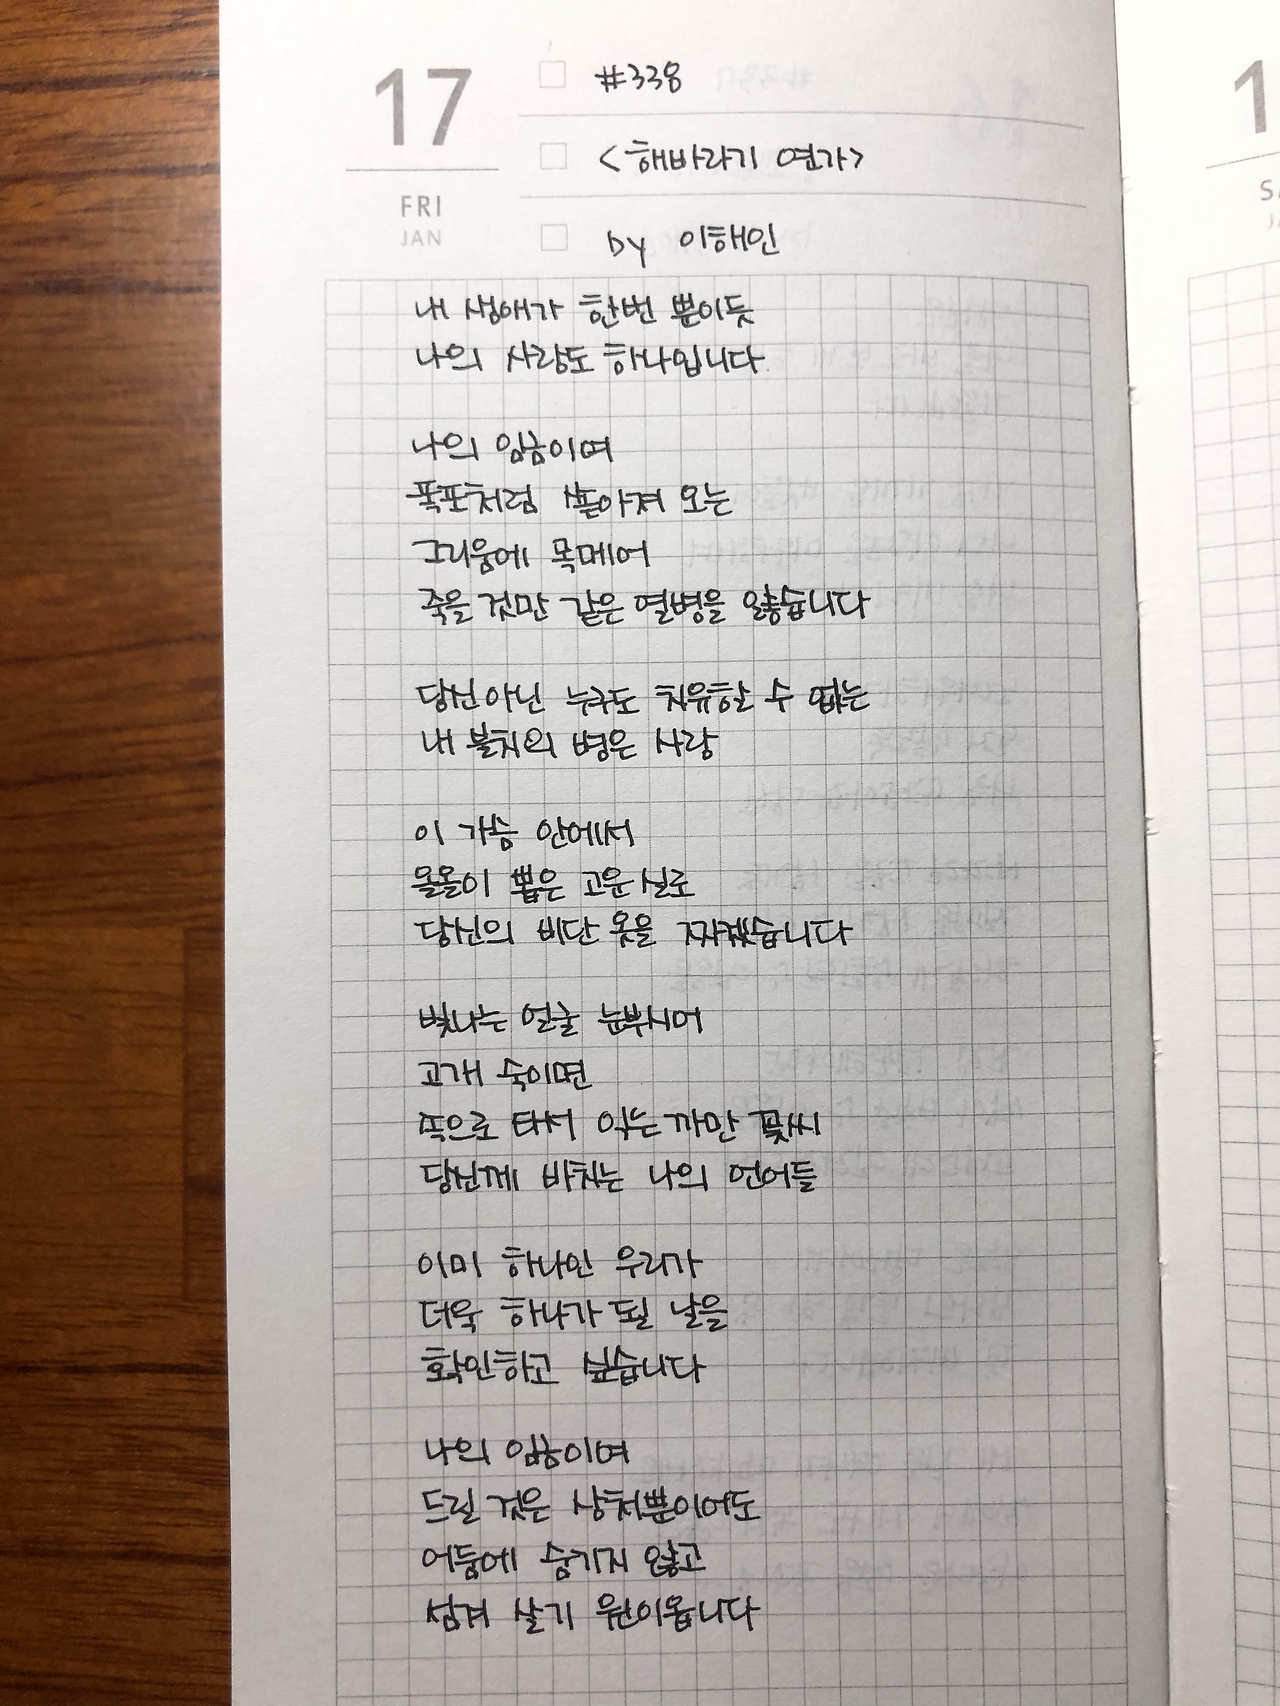 17
FRI
JAN
#338
<해바라기 연가>
by 이해인
내 생애가 한번 뿐이듯
나의 사랑도 하나입니다
나의 임금이여
폭포처럼 쏟아져 오는
그리움에 목메어
죽을 것만 같은 열병을 앓습니다
당신아닌 누구도 치유할 수 없는
내 불치의 병은 사랑
이 가슴 안에서
올올이 뽑은 고운 실로
당신의 비단 옷을 짜겠습니다
빛나는 얼굴 눈부시어
고개 숙이면
속으로 타서 익는 까만 꽃씨
당신께 바치는 나의 언어들
이미 하나인 우리가
더욱 하나가 될 날을
확인하고 싶습니다
나의 임금이여
드릴 것은 상처뿐이어도
어둠에 숨기지 않고
섬겨 살기 원이옵니다